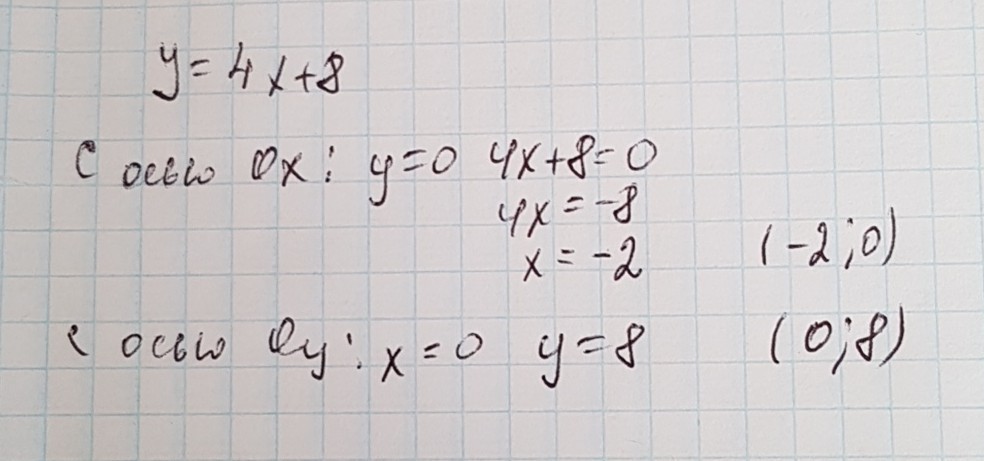 y = 4x+8
С осью Ox: y=0 4x+8=0
4x = -8
x = -2 (-2;0)
с осью Oy: x = 0 y = 8 (0;8)